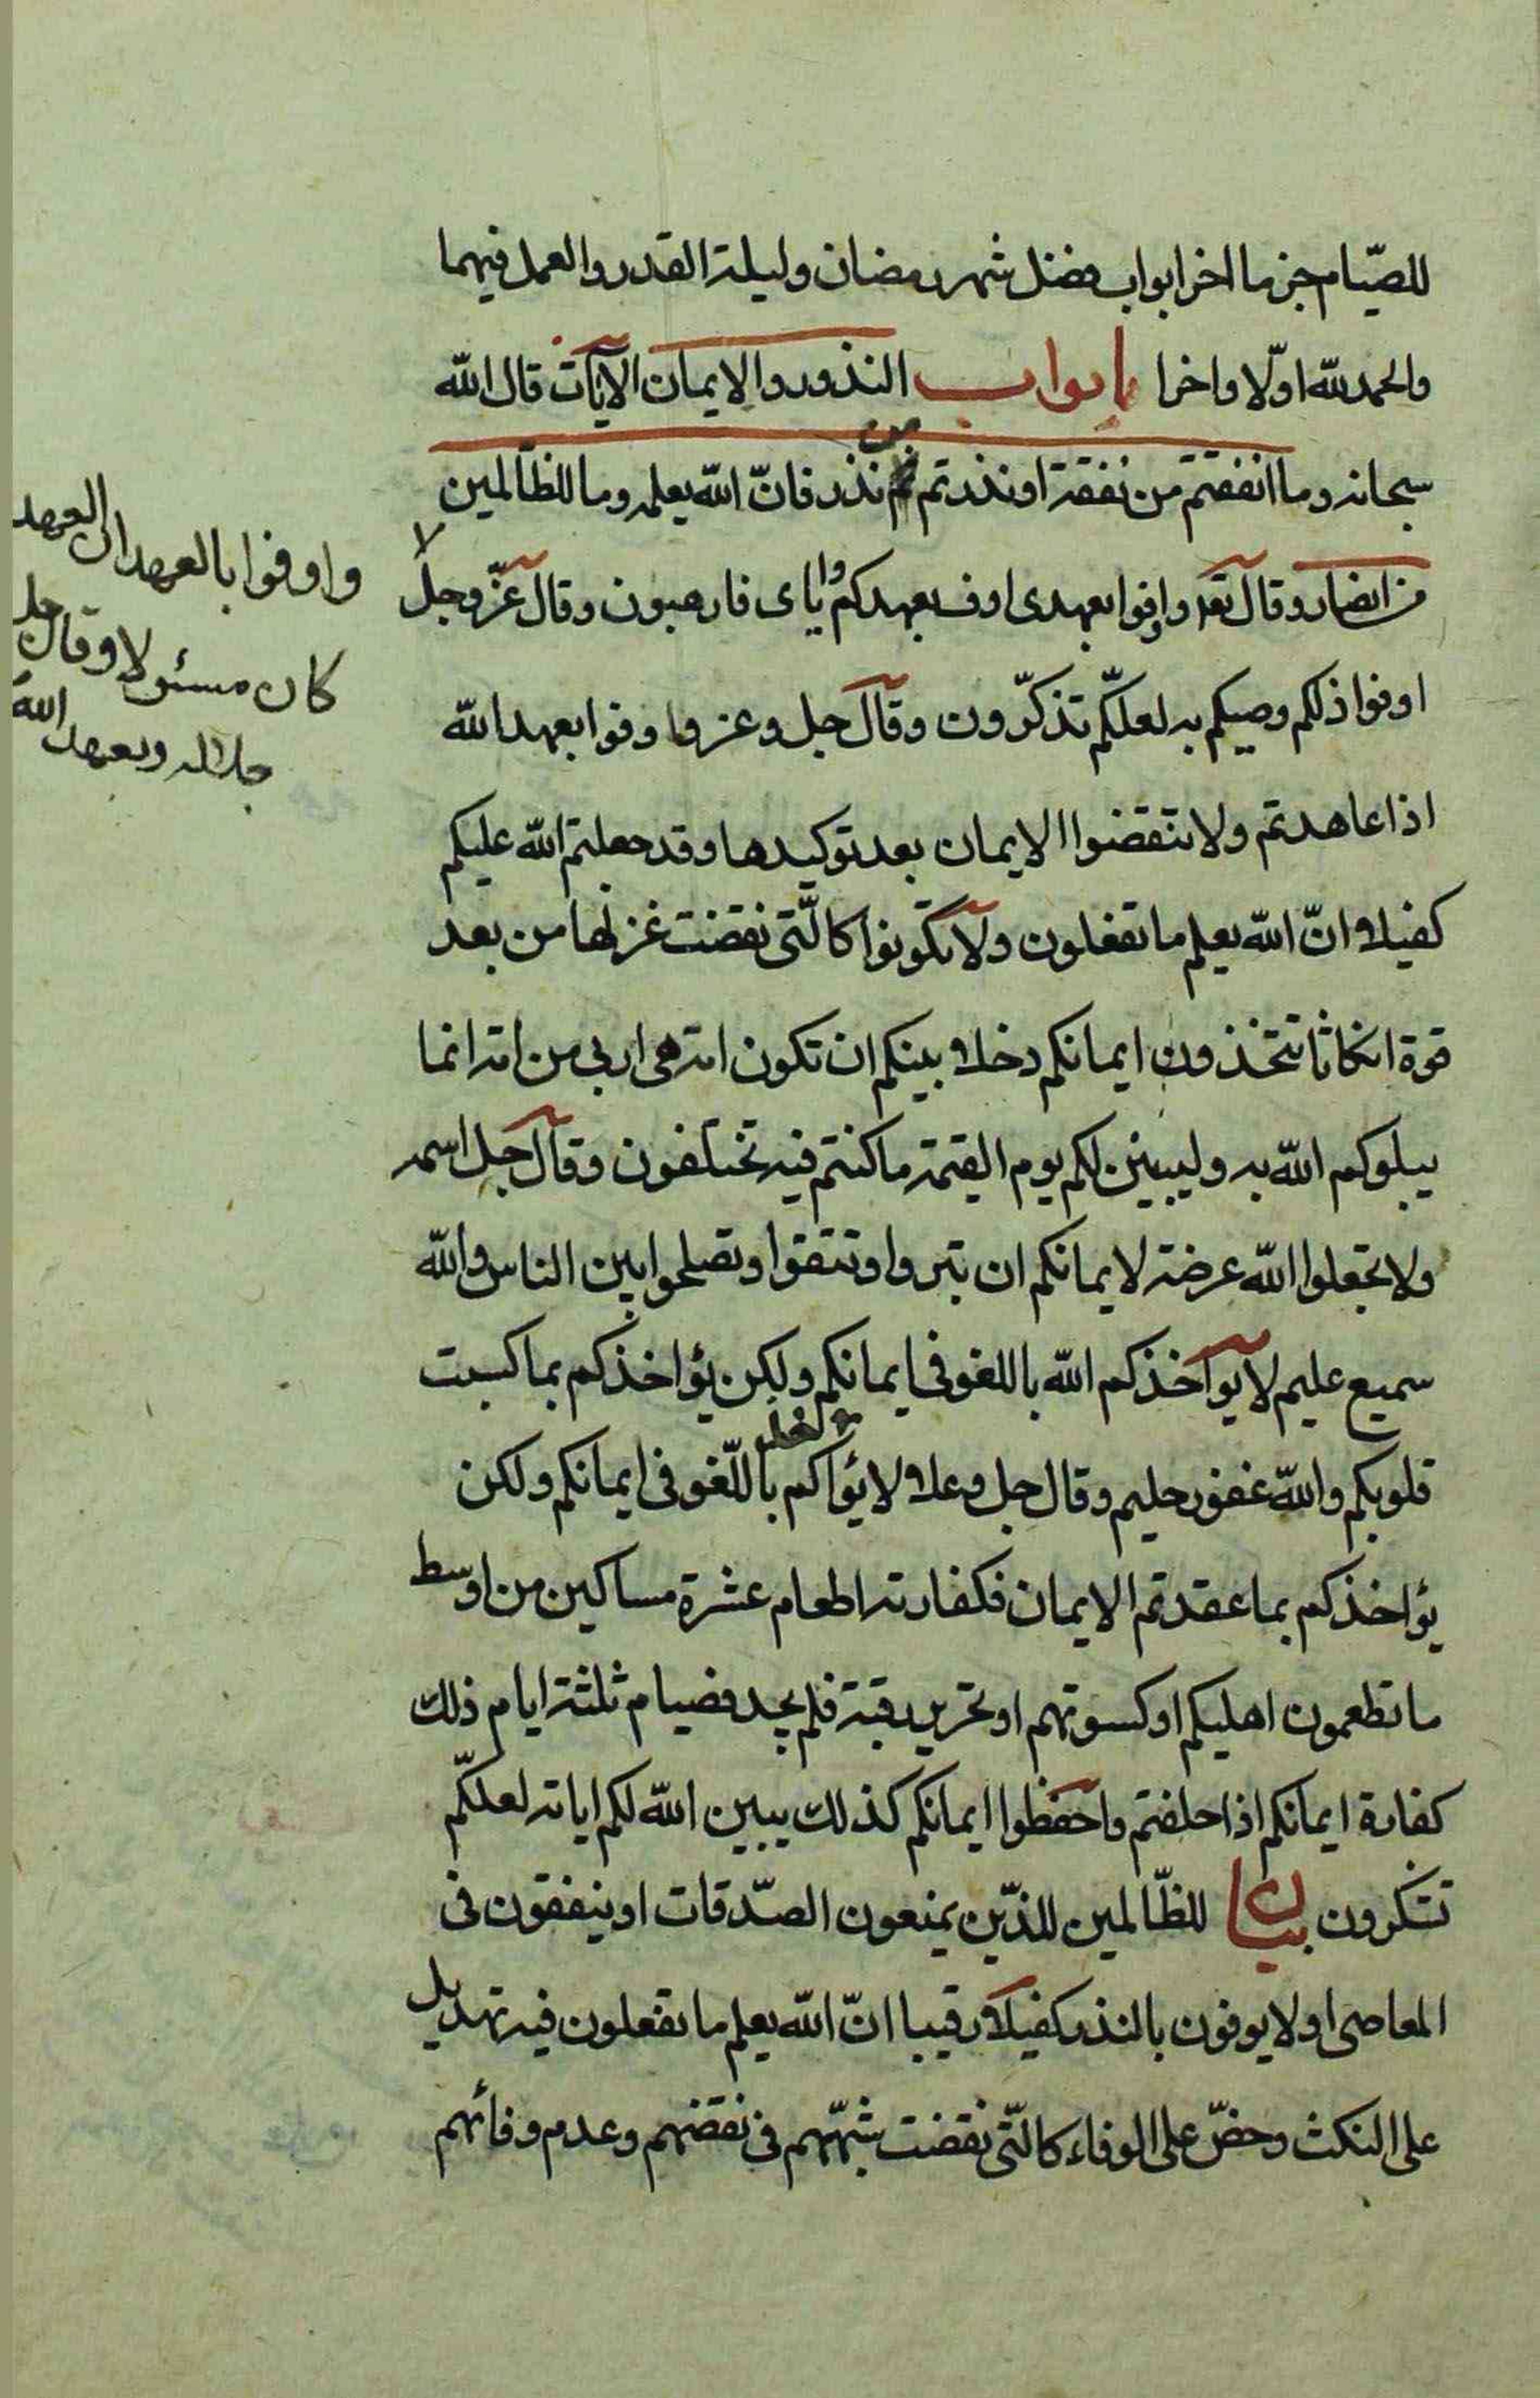 للصّيام جزما اخر ابواب فضل شهر رمضان وليلة القدر والعمل فيهما
والحمد لله اوّلا واخرا ابواب النذور والايمان الايات قال الله
سبحانه وما انفقتم من نفقة او نذرتم من نذر فانّ الله يعلمه وما للظالمين
من انصار وقال تعه واوفوا بعهدى اوف بعهدكم واياى فارهبون وقال عزّ وجل
اوفوا ذلكم وصيكم به لعلكّم تذكّرون وقال جل وعز واوفوا بعهد الله
اذا عاهدتم ولا تنقضوا الايمان بعد توكيدها وقد جعلتم الله عليكم
كفيلا وانّ الله يعلم ما تفعلون ولا تكونوا كالّتى نقضت غزلها من بعد
قوة انكاثا تتخذون ايمانكم دخلا بينكم ان تكون امة هى اربى من امة انما
يبلوكم الله به وليبينن لكم يوم القيمة ما كنتم فيه تختلفون وقال جل اسمه
ولا تجعلوا الله عرضة لايمانكم ان تبروا وتتقوا وتصلحوا بين الناس والله
سميع عليم لا يواخذكم الله باللغو فى ايمانكم ولكن يؤاخذكم بما كسبت
قلوبكم والله غفور حليم وقال جل وعلا لا يؤاكم باللّغو فى ايمانكم ولكن
يؤاخذكم بما عقدتم الايمان فكفارته اطعام عشرة مساكين من اوسط
ما تطعمون اهليكم او كسوتهم او تحرير رقبة فلم يجد فصيام ثلثة ايام ذلك
كفارة ايمانكم اذا حلفتم واحفظوا ايمانكم كذلك يبين الله لكم اياته لعلكّم
تشكرون بيان للظّالمين للذّين يمنعون الصّدقات او ينفقون فى
المعاصى او لا يوفون بالنذر كفيلا رقيبا انّ الله يعلم ما تفعلون فيه تهديد
على النكث وحضّ على الوفاء كالّتى نقضت شبّههم فى نقضهم وعدم وفائهم
واوفوا بالعهد ان العهد
كان مسئولا وقال جل
جلاله وبعهد الله